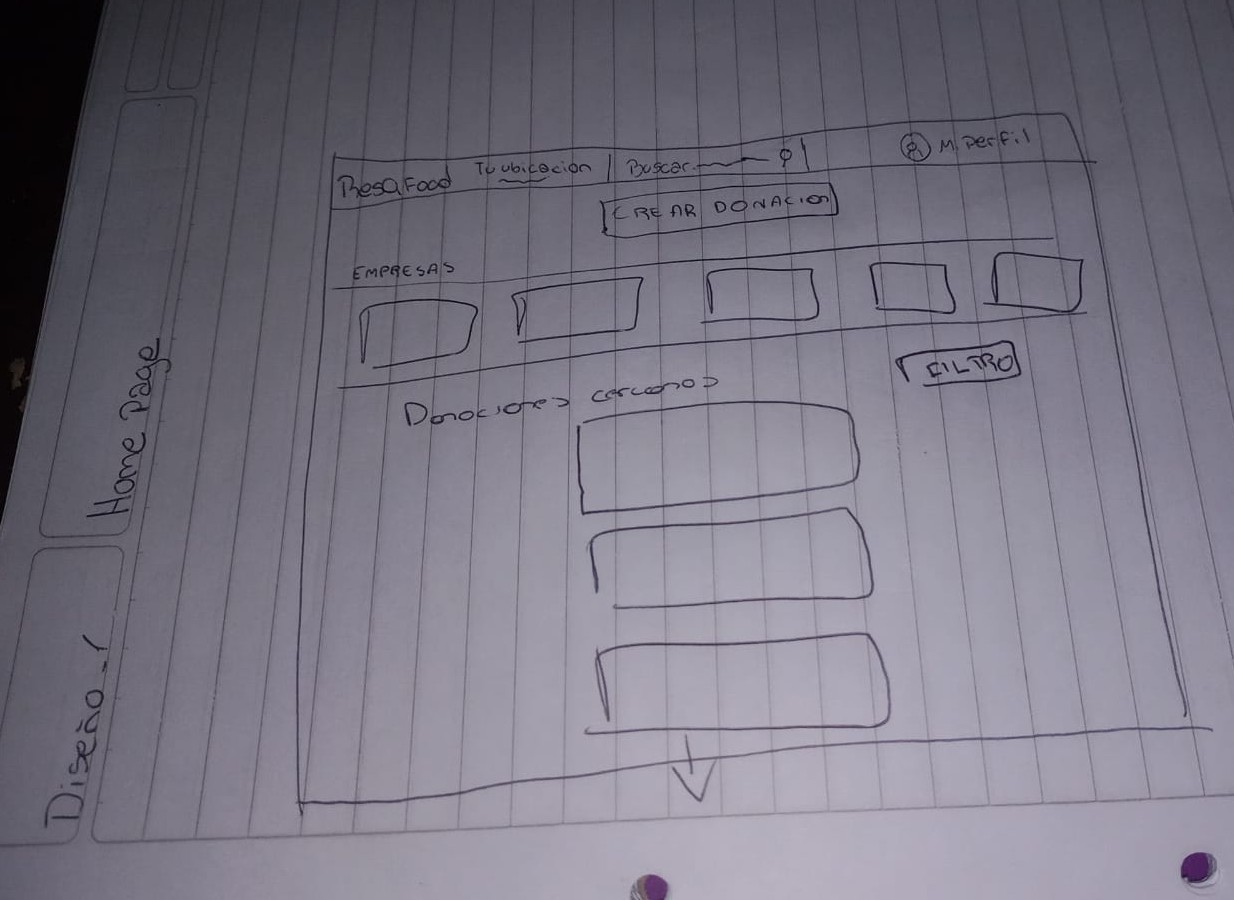 Diseño-1
Home Page
ResaFood Tu ubicacion Buscar Mi Perfil
CREAR DONACION
EMPRESAS
FILTRO
Donaciones cercanas